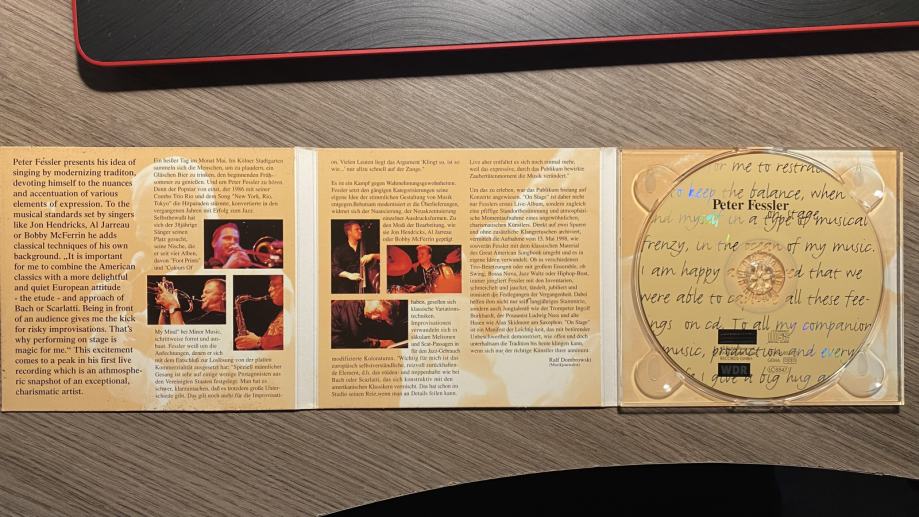 Peter Fessler presents his idea of
singing by modernizing traditon,
devoting himself to the nuances
and accentuation of various
elements of expression. To the
musical standards set by singers
like Jon Hendricks, Al Jarreau
or Bobby McFerrin he adds
classical techniques of his own
background. „It is important
for me to combine the American
classics with a more delightful
and quiet European attitude
- the etude - and approach of
Bach or Scarlatti. Being in front
of an audience gives me the kick
for risky improvisations. That's
why performing on stage is
magic for me." This excitement
comes to a peak in his first live
recording which is an athmosphe-
ric snapshot of an exceptional,
charismatic artist.
Ein heißer Tag im Monat Mai. Im Kölner Stadtgarten
sammeln sich die Menschen, um zu plaudern, ein
Gläschen Bier zu trinken, den beginnenden Früh-
sommer zu genießen. Und um Peter Fessler zu hören.
Denn der Popstar von einst, der 1986 mit seiner
Combo Trio Rio und dem Song "New York, Rio,
Tokyo" die Hitparaden stürmte, konvertierte in den
vergangenen Jahren mit Erfolg zum Jazz.
Selbstbewußt hat
sich der 39jährige
Sänger seinen
Platz gesucht,
seine Nische, die
er seit vier Alben,
davon "Foot Prints"
und "Colours Of
My Mind" bei Minor Music,
schrittweise formt und aus-
baut. Fessler weiß um die
Anfechtungen, denen er sich
mit dem Entschluß zur Loslösung von der platten
Kommerzialität ausgesetzt hat: "Speziell männlicher
Gesang ist sehr auf einige wenige Protagonisten aus
den Vereinigten Staaten festgelegt. Man hat es
schwer, klarzumachen, daß es trotzdem große Unter-
schiede gibt. Das gilt noch mehr für die Improvisati-
on. Vielen Leuten liegt das Argument 'Klingt so, ist so
wie...' nur allzu schnell auf der Zunge."
Es ist ein Kampf gegen Wahrnehmungsgewohnheiten.
Fessler setzt den gängigen Kategorisierungen seine
eigene Idee der stimmlichen Gestaltung von Musik
entgegen. Behutsam modernisiert er die Überlieferungen,
widmet sich der Nuancierung, der Neuakzentuierung
einzelner Ausdrucksformen. Zu
den Modi der Bearbeitung, wie
sie Jon Hendricks, Al Jarreau
oder Bobby McFerrin geprägt
haben, gesellen sich
klassische Variations-
techniken.
Improvisationen
verwandeln sich in
vokulare Melismen
und Scat-Passagen in
für den Jazz-Gebrauch
modifizierte Koloraturen. "Wichtig für mich ist das
europäisch selbstverständliche, reizvoll zurückhalten-
de Element, d.h. das etüden- und treppenhafte wie bei
Bach oder Scarlatti, das sich konstruktiv mit den
amerikanischen Klassikern vermischt. Das hat schon im
Studio seinen Reiz, wenn man an Details feilen kann.
Live aber entfaltet es sich noch einmal mehr,
weil das expressive, durch das Publikum bewirkte
Zaubertürmoment die Musik verändert."
Um das zu erleben, war das Publikum bislang auf
Konzerte angewiesen. "On Stage" ist daher nicht
nur Fesslers erstes Live-Album, sondern zugleich
eine pfiffige Standortbestimmung und atmosphäri-
sche Momentaufnahme eines ungewöhnlichen,
charismatischen Künstlers. Direkt auf zwei Spuren
und ohne zusätzliche Klangretuschen archiviert,
vermittelt die Aufnahme vom 15. Mai 1998, wie
souverän Fessler mit dem Klassischen Material
des Great American Songbook umgeht und es in
eigene Ideen verwandelt. Ob in verschiedenen
Trio-Besetzungen oder mit großem Ensemble, ob
Swing, Bossa Nova, Jazz Waltz oder Hiphop-Beat,
immer jongliert Fessler mit den Inventarien,
schmeichelt und jauchzt, tändelt, jubiliert und
ironisiert die Festlegungen der Vergangenheit. Dabei
helfen ihm nicht nur seit langjährigen Stammtrio,
sondern auch Jungtalente wie der Trompeter Ingolf
Burkhardt, der Posaunist Ludwig Nuss und alte
Hasen wie Alan Skidmore am Saxophon. "On Stage"
ist ein Manifest der Leichtigkeit, das mit betörender
Unbeschwertheit demonstriert, wie offen und doch
unterhalb die Tradition bis heute klingen kann,
wenn sich nur der richtige Künstler ihrer annimmt.
Ralf Dombrowski
(Musikjournalist)
or me to restra
to keep the balance, when
Peter Fessler
on Stage
and myself in a type of musical
frenzy, in the ocean of my music.
I am happy a ed that we
were able to ca all these fee-
ngs on cd. To all my companion
music, production and every
fe I give a big hug a
WDR
GEMA
LC 8847